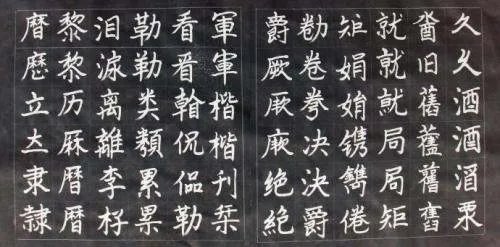 久乆酒酒
旧舊舊舊
就就就局局矩
矩娟娟镌鐫倦
勌卷拳决決爵
爵厥厥厥绝絕
軍軍楷楷刊栞
看看翰侃偘勒
勒勒类類累累
泪淚离離李杍
黎黎历厤曆曆
曆歷立隶隸